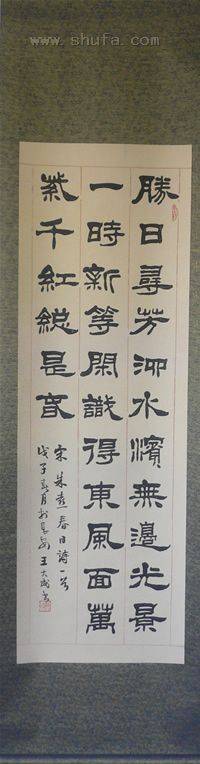 www.shufa.com
勝日尋芳泗水濱無邊光景
一時新等閑識得東風面萬
紫千紅總是春
宋朱熹春日詩一首
戊子春月於長安王大